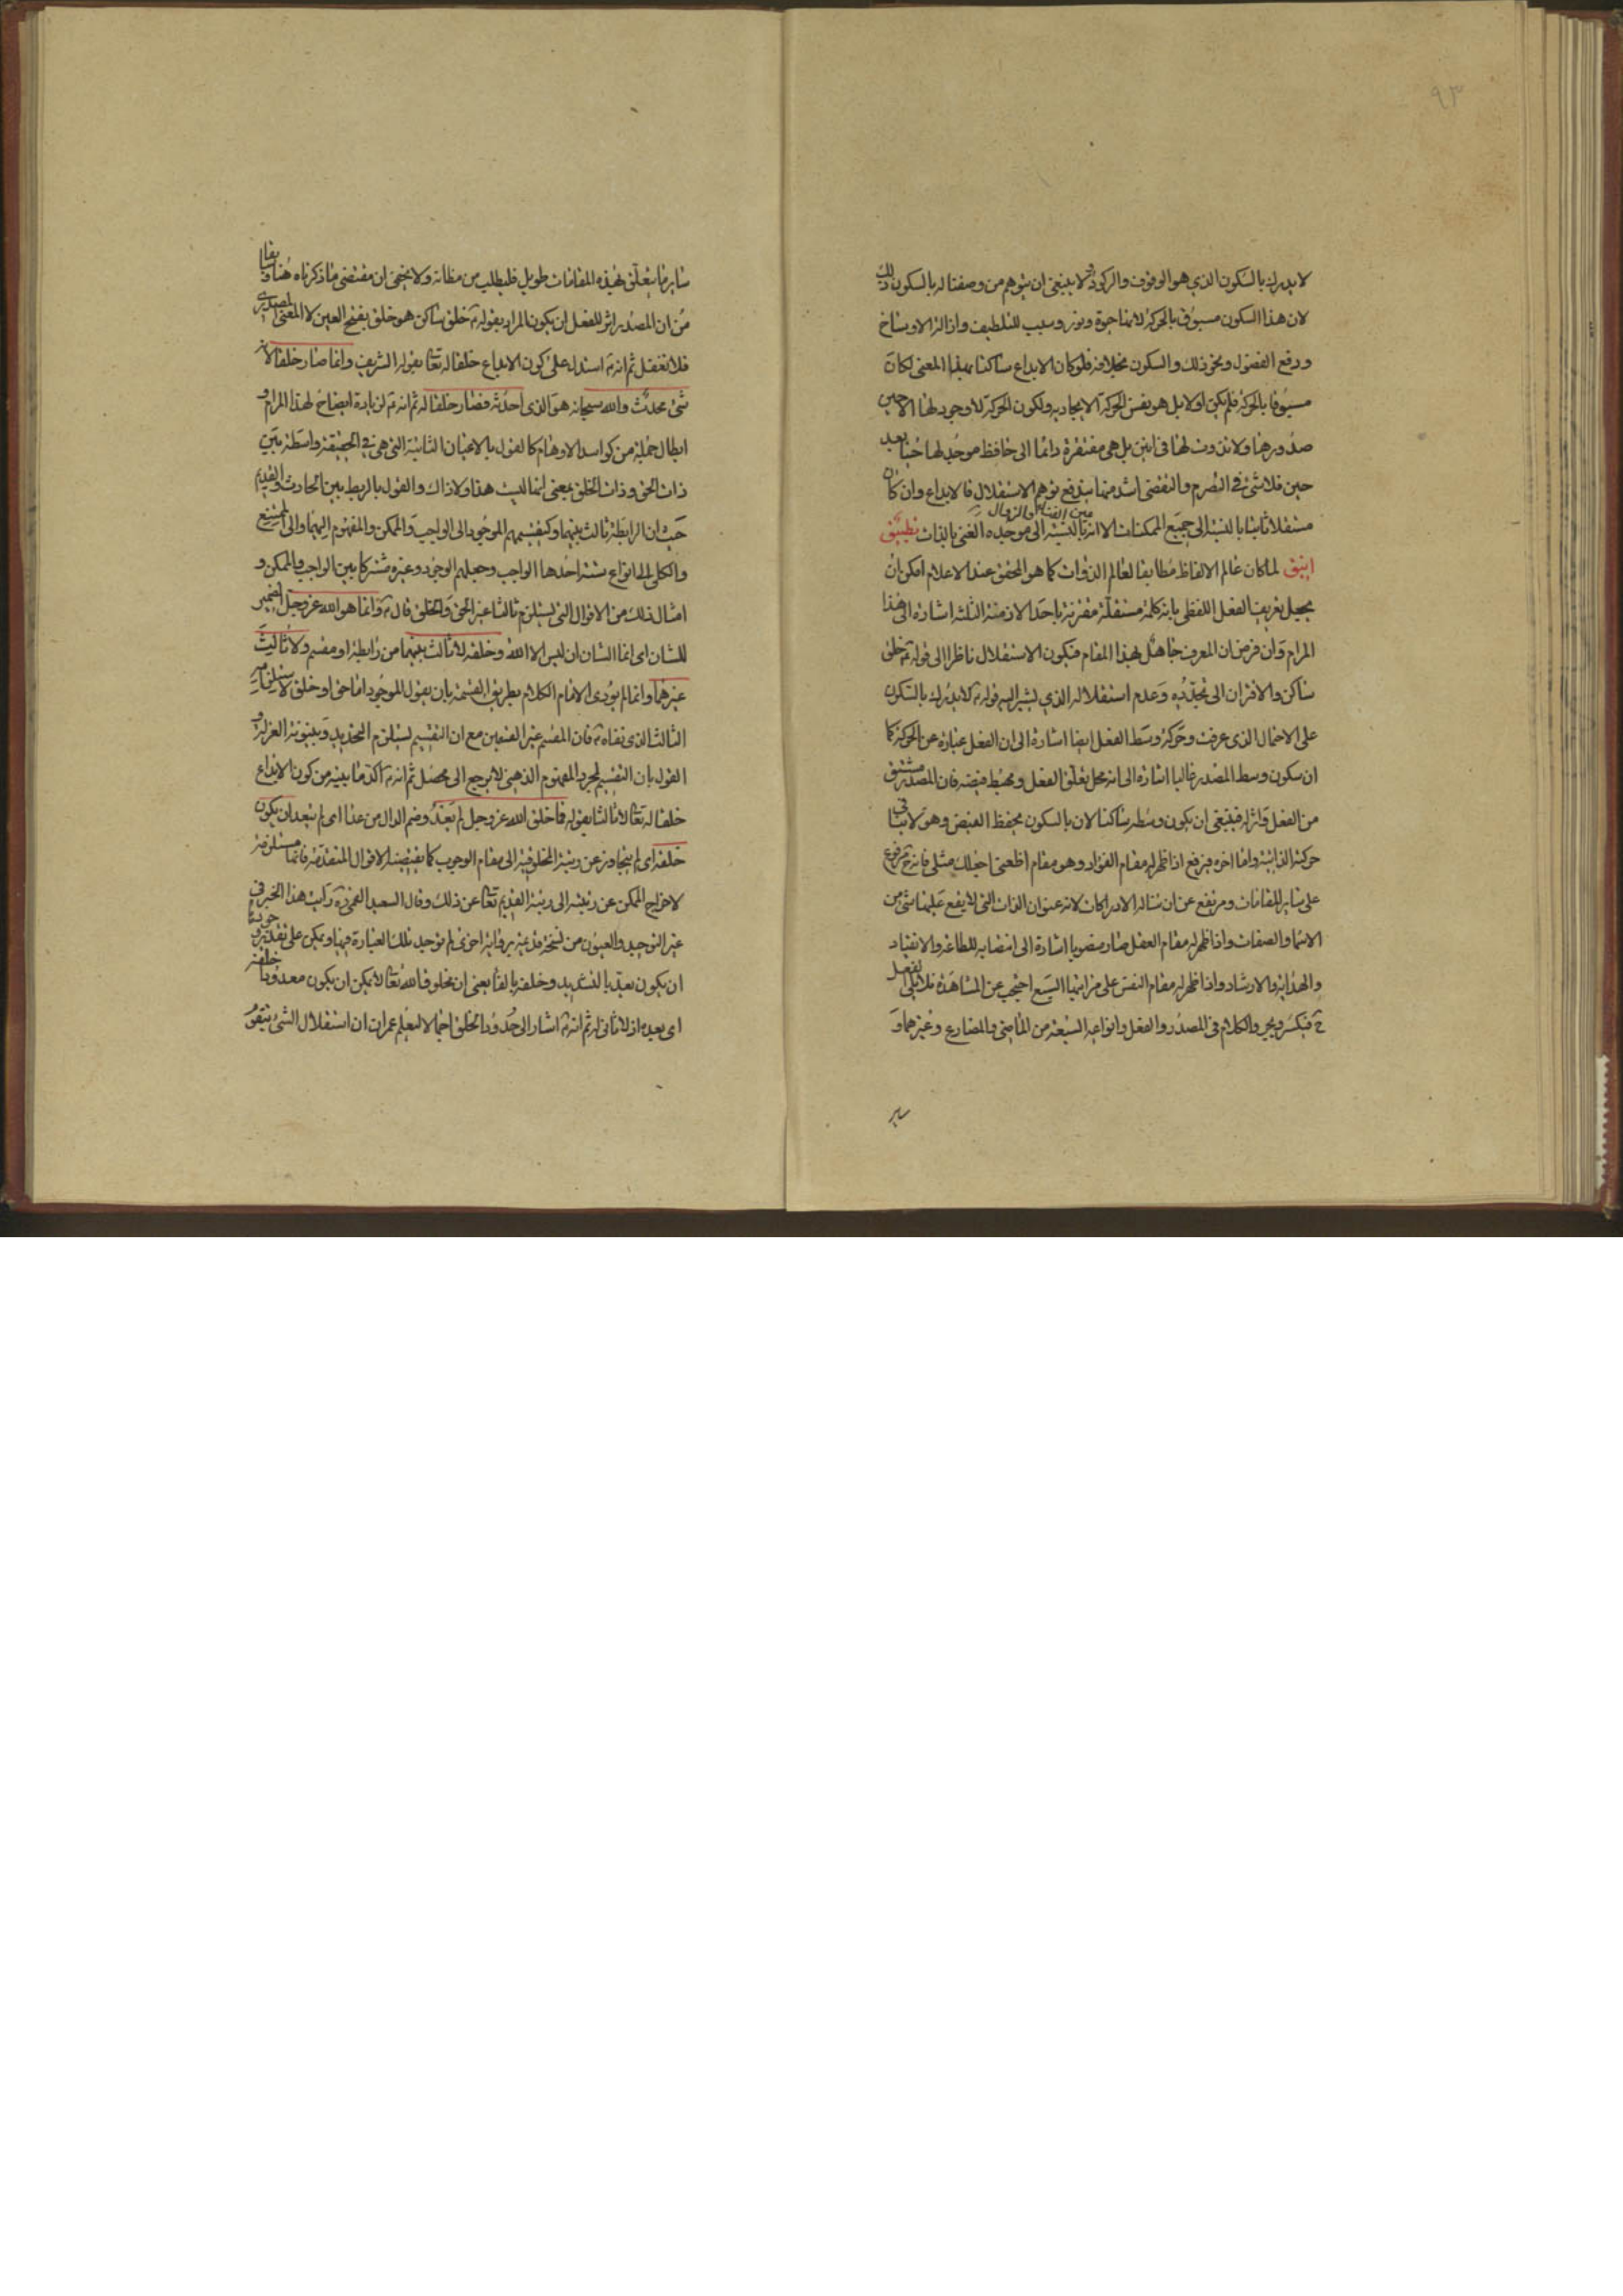 ٩٣
لا يدرك بالسكون الذي هو الوقوف والركود ولا ينبغي ان يتوهم من وصفنا له بالسكون ذلك
لان هذا السكون مسبوق بالحركة لانها حيوة ونور وسبب للتلطيف وازالة الاوساخ
ورفع الفضول ونحو ذلك والسكون بخلافه فلو كان الابداع ساكنا بهذا المعنى لكان
مسبوقا بالحركة فلم يكن اولا بل هو نفس الحركة الايجادية ولكون الحركة لا وجود لها الا حين
صدورها ولا تذوت لها في اينين بل هي مفتقرة دائما الى حافظ موجد لها حينا بعد
حين فلا شئ في التصرم والتقضي اشد منها يندفع توهم الاستقلال فالابداع وان كان
مستقلا ثابتا بالنسبة الى جميع الممكنات الا انه بالنسبة الى موجده الغني بالذات تطبيق
عين الفناء والزوال
انيق لما كان عالم الالفاظ مطابقا لعالم الذوات كما هو المحقق عند الاعلام امكن ان
يجعل تعريف الفعل اللفظي بانه كلمة مستقلة مقترنة باحد الازمنة الثلثة اشارة الى هذا
المرام وان فرض ان المعرف جاهل بهذا المقام فيكون الاستقلال ناظرا الى قوله خلق
ساكن والاقتران الى تجدده وعدم استقلاله الذي يشير اليه قوله لا يدرك بالسكون
على الاحتمال الذي عرفت وحركة وسط الفعل ايضا اشارة الى ان الفعل عبارة عن الحركة كما
ان سكون وسط المصدر غالبا اشارة الى انه محل تعلق الفعل ومحيط فيضه فان المصدر مشتق
من الفعل واثر له فينبغي ان يكون وسطه ساكنا لان بالسكون يحفظ الفيض وهو لا ينافي
حركته الذاتية واما اخره فيرفع اذا ظهر له مقام الفؤاد وهو مقام اطعني اجعلك مثلي فانه مرفوع
على ساير المقامات ومرتفع عن ان تناله الادراكات لانه عنوان الذات التي لا يقع عليها شئ من
الاسما والصفات واذا ظهر له مقام العقل صار منصوبا اشارة الى انتصابه للطاعة والانقياد
والهداية والارشاد واذا ظهر له مقام النفس على مراتبها السبع احتجب عن المشاهدة فلا يلي الفعل
ح فيكسر ويجر والكلام في المصدر والفعل وانواعه السبعة من الماضي والمضارع وغيرهما و
ساير
ساير ما يتعلق بهذه المقامات طويل فليطلب من مظانه ولا يخفى ان مقتضى ما ذكرناه هنا وسابقا
من ان المصدر اثر للفعل ان يكون المراد بقوله خلق ساكن هو خلق بفتح العين لا المعنى المصدري
فلا تغفل ثم انه استدل على كون الابداع خلقا له تعالى بقوله الشريف وانما صار خلقا لانه
شئ محدث والله سبحانه هو الذي احدثه فصار خلقا له ثم انه لزيادة ايضاح لهذا المرام و
ابطال جملة من كواسد الاوهام كالقول بالاعيان الثابتة التي هي في الحقيقة واسطة بين
ذات الحق وذات الخلق بمعنى انها ليست هذا ولا ذاك والقول بالربط بين الحادث والقديم
حيث ان الرابطة ثالث بينهما وكتقسيمهم الموجود الى الواجب والممكن والمفهوم اليهما والى الممتنع
والكلي الى انواع ستة احدها الواجب وجعلهم الوجود وغيره مشتركا بين الواجب والممكن و
امثال ذلك من الاقوال التي تستلزم ثالثا غير الحق والخلق قال وانما هو الله عز وجل الضمير
للشان اي انما الشان ان ليس الا الله وخلقه لا ثالث بينهما من رابطة او مقسم ولا ثالث
غيرهما وانما لم يؤدي الامام الكلام بطريق القسمة بان يقول الموجود اما حق او خلق لاستلزامه
الثالث الذي نفاه فان المقسم غير القسمين مع ان التقسيم يستلزم التحديد وبينونة العزلة و
القول بان التقسيم لمجرد المفهوم الذهني لا يرجع الى محصل ثم انه اكد ما بينه من كون الابداع
خلقا له تعالى لا ثالثا بقوله فما خلق الله عز وجل لم يعد وضم الدال من عدا اي لم يتعد ان يكون
خلقه اي لم يتجاوز عن رتبة المخلوقية الى مقام الوجوب كما يقتضيه الاقوال المتقدمة فانها مستلزمة
لاخراج الممكن عن رتبته الى رتبة القديم تعالى عن ذلك وقال السعيد القمي رأيت هذا الخبر في
غير التوحيد والعيون من نسخة قديمة برواية اخرى لم توجد تلك العبارة فيها ويمكن على تقدير وجودها
ان يكون نعد بالتشديد وخلقه بالفا يعني ان مخلوق الله تعالى لا يمكن ان يكون معدودا خلفه
اي بعده اذ لا ثاني له ثم انه اشار الى حدود الخلق اجمالا ليعلم عمران ان استقلال الشئ بتقو